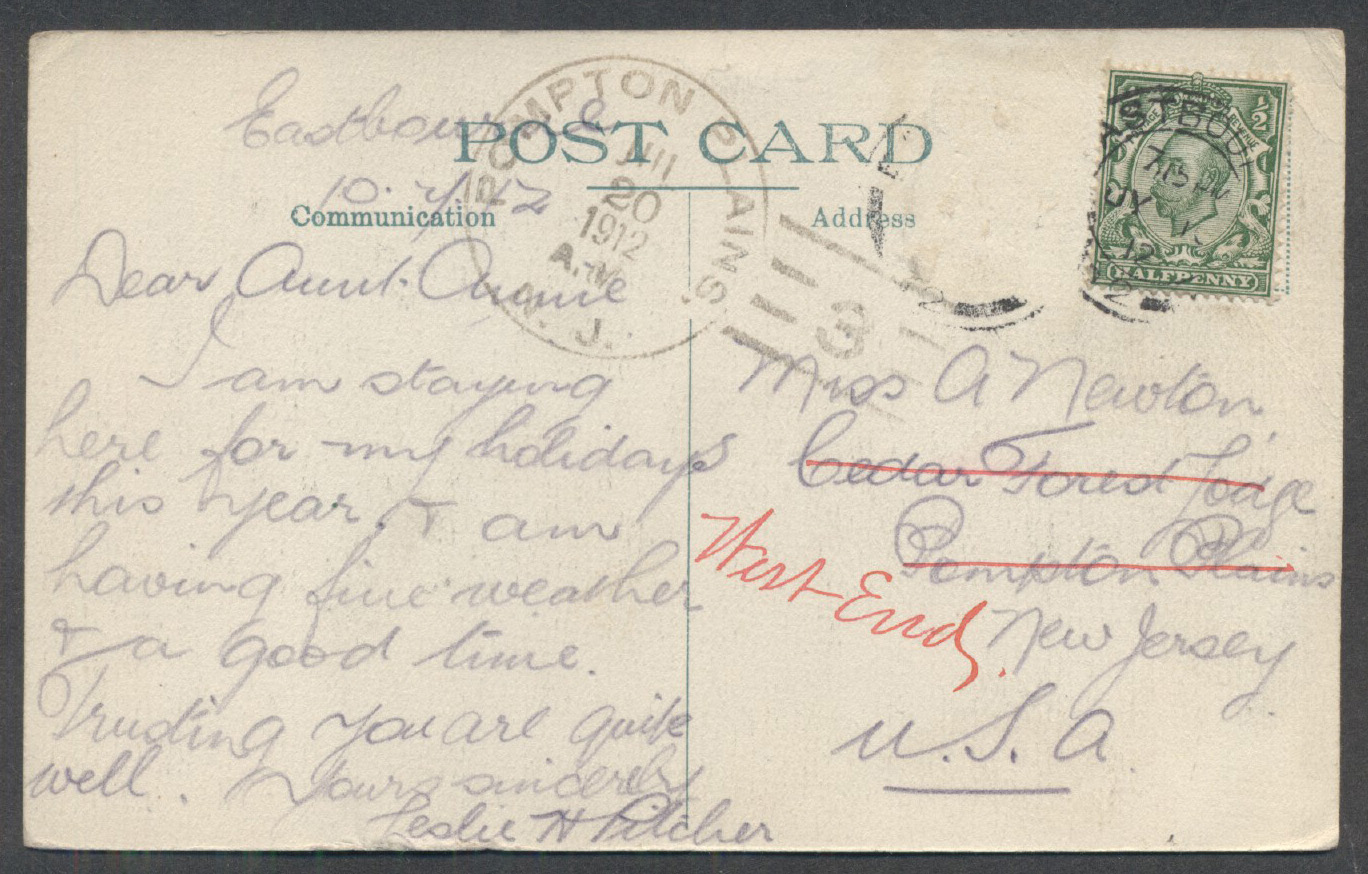 POST CARD
Communication
Address
Eastbourne
10.7/12
Dear Aunt Annie
I am staying
here for my holidays
this year, & am
having fine weather
& a good time.
Trusting you are quite
well. Yours sincerely
Leslie H Pitcher
POMPTON PLAINS
JUL
20
1912
A.M.
N. J.
3
EASTBOU
715 PM
JY
12
HALFPENNY
½
Miss A Newton,
Cedar Forest Lodge
Pompton Plains
West End,
New Jersey
U.S.A.